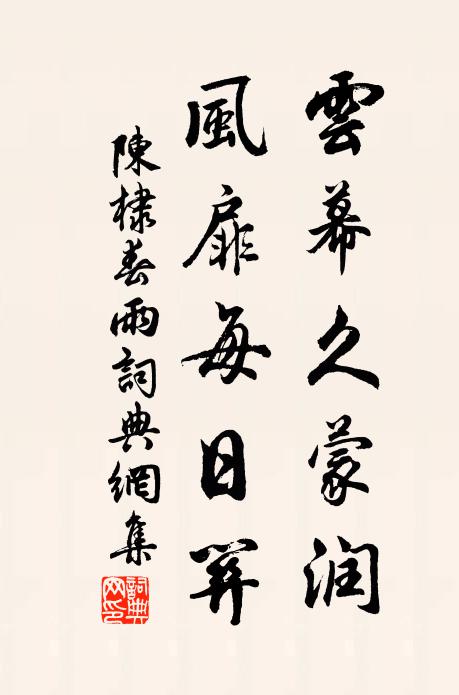 雲幕久蒙潤
風扉每日開
陳棣春雨詞典網集
詞典网印